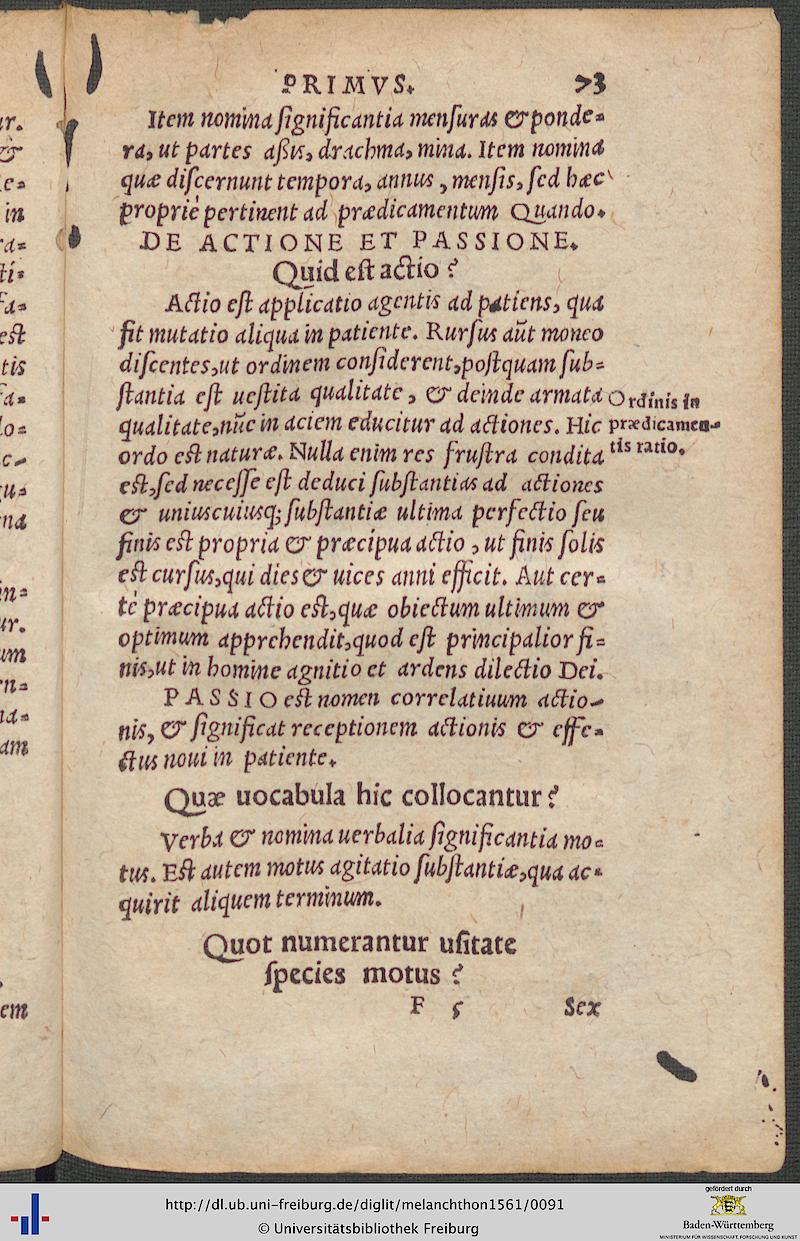 PRIMVS. 73
Item nomina ſignificantia menſuras & ponde=
ra, ut partes aßis, drachma, mina. Item nomina
quæ diſcernunt tempora, annus, menſis, ſed hæc
propriè pertinent ad prædicamentum Quando.
DE ACTIONE ET PASSIONE.
Quid eſt actio?
Actio eſt applicatio agentis ad patiens, qua
fit mutatio aliqua in patiente. Rurſus aūt moneo
diſcentes, ut ordinem conſiderent, poſtquam ſub=
ſtantia eſt ueſtita qualitate, & deinde armata
qualitate, nūc in aciem educitur ad actiones. Hic
ordo eſt naturæ. Nulla enim res fruſtra condita
eſt, ſed neceſſe eſt deduci ſubſtantias ad actiones
& uniuscuiusq; ſubſtantiæ ultima perfectio ſeu
finis eſt propria & præcipua actio, ut finis ſolis
eſt curſus, qui dies & uices anni efficit. Aut cer=
tè præcipua actio eſt, quæ obiectum ultimum &
optimum apprehendit, quod eſt principalior fi=
nis, ut in homine agnitio et ardens dilectio Dei.
PASSIO eſt nomen correlatiuum actio-
nis, & ſignificat receptionem actionis & effe=
ctus noui in patiente.
Quæ uocabula hic collocantur?
Verba & nomina uerbalia ſignificantia mo=
tus. Eſt autem motus agitatio ſubſtantiæ, qua ac=
quirit aliquem terminum.
Quot numerantur uſitate
ſpecies motus?
F 5 Sex
Ordinis in
prædicamen-
tis ratio.
ur.
&
e=
in
ra=
ti=
fa=
eſt
tis
fa=
lo=
c-
gu=
na
in=
ur.
um
rn=
na=
am
em
http://dl.ub.uni-freiburg.de/diglit/melanchthon1561/0091
© Universitätsbibliothek Freiburg
gefördert durch
Baden-Württemberg
MINISTERIUM FÜR WISSENSCHAFT, FORSCHUNG UND KUNST